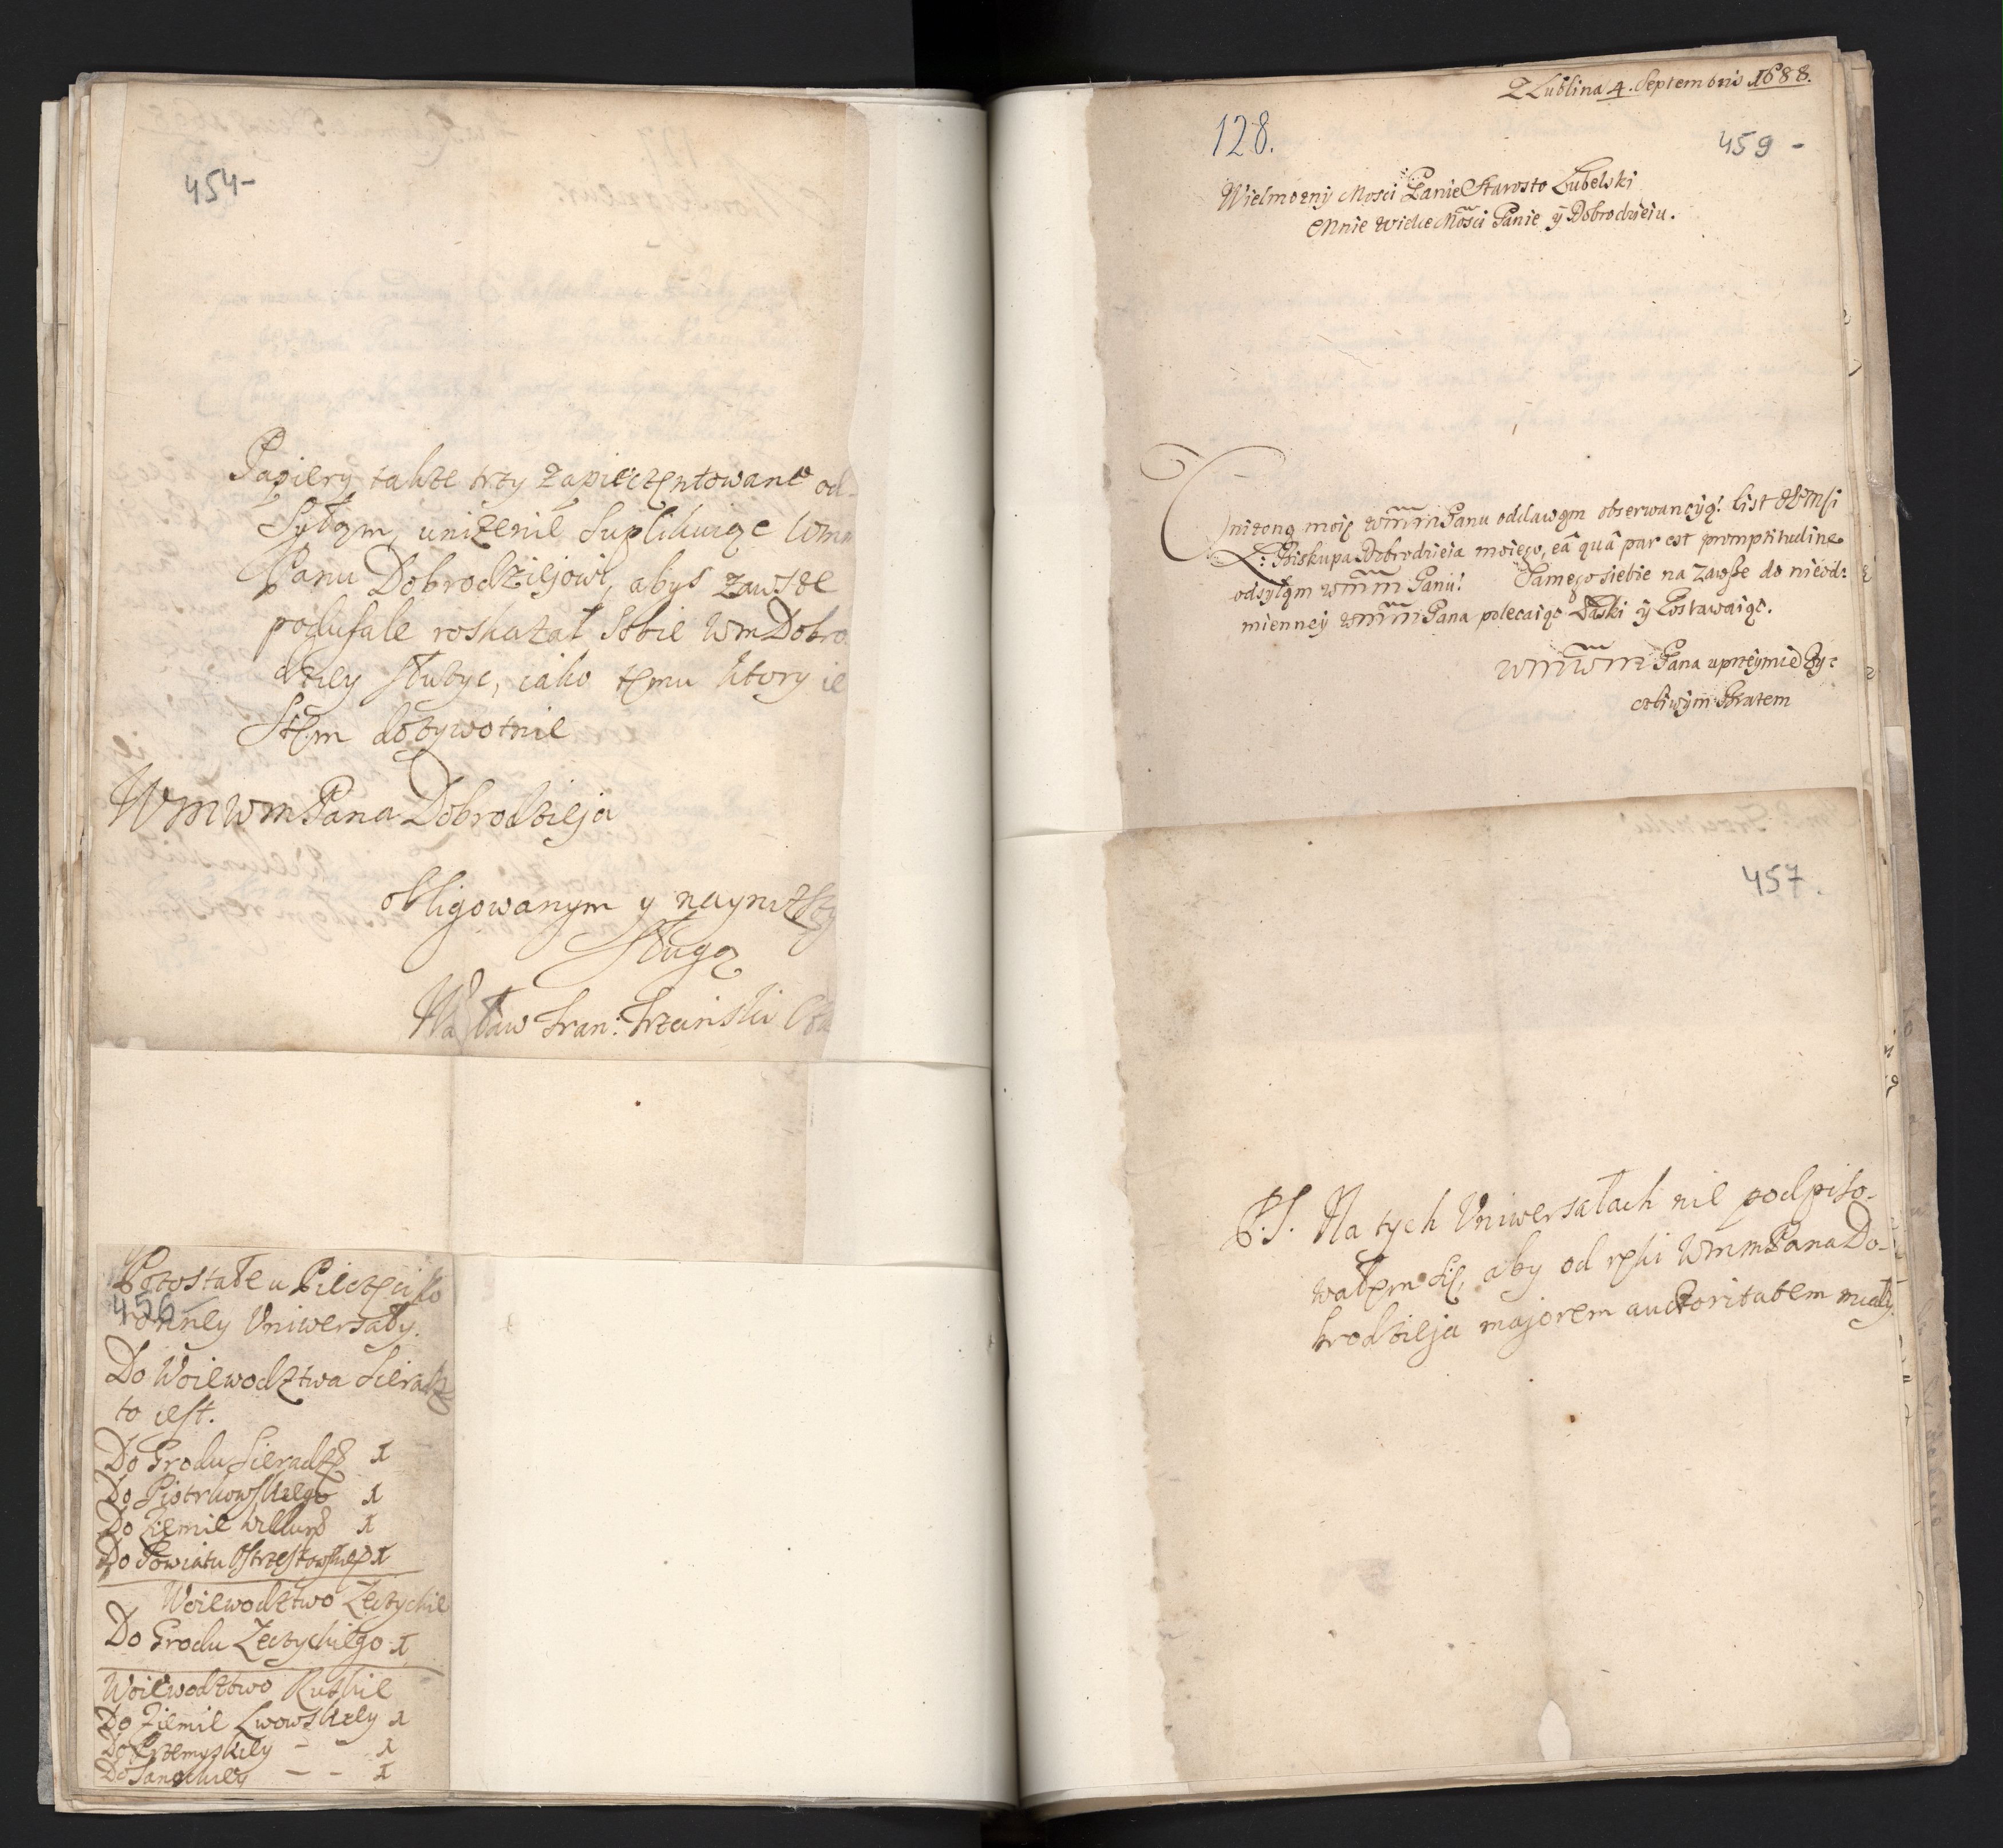 454-
Papiery takze trzy zapieczętowane od-
syłąm, unizenie suplikuiąc Wmm
Panu Dobrodziejowi, abys zawsze
podufale roskazał sobie Wm Dobro
dziey słuzyc, iako temu ktory ie
stem dozywotnie
WmWmPana Dobrodzieja
obligowanym y nayniższy
sługą
Fran: Trzcinski
Pozostałe u Pieczęci ko
456
ronney Uniwersały.
Do Woiewodztwa Sieradz
to iest.
Do Grodu Sieradz 1
Do Piotrkowskiego 1
Do Ziemie Wieluns 1
Do Powiatu Ostrzeszowskie 1
Woiewodztwo Łęczyckie
Do Grodu Łęczyckiego 1
Woiewodztwo Ruskie
Do Ziemie Lwowskiey 1
Do Przemyskiey - 1
Do Sanockiey - - 1
Z Lublina 4. Septembris 1688.
128.
459 -
Wielmozny Mosci Panie Starosto Lubelski
Mnie wielce Mosci Panie y Dobrodzieiu.
Unizoną moię WmmmPanu oddawam obserwancyią. List
Biskupa Dobrodzieia moiego, eâ quâ par est promptitudine
odsyłąm Wmmm Panu. Samego siebie na zawsze do nieod:
mienney WmmmPana polecaiąc Łaski y zostawaiąc.
WmWm Pana uprzeymie Zy:
czliwym Bratem
457.
P.S. Na tych Uniwersałach nie podpiso-
wałem się, aby od ręki WmmPana Do-
brodzieja majorem auctoritatem miały.